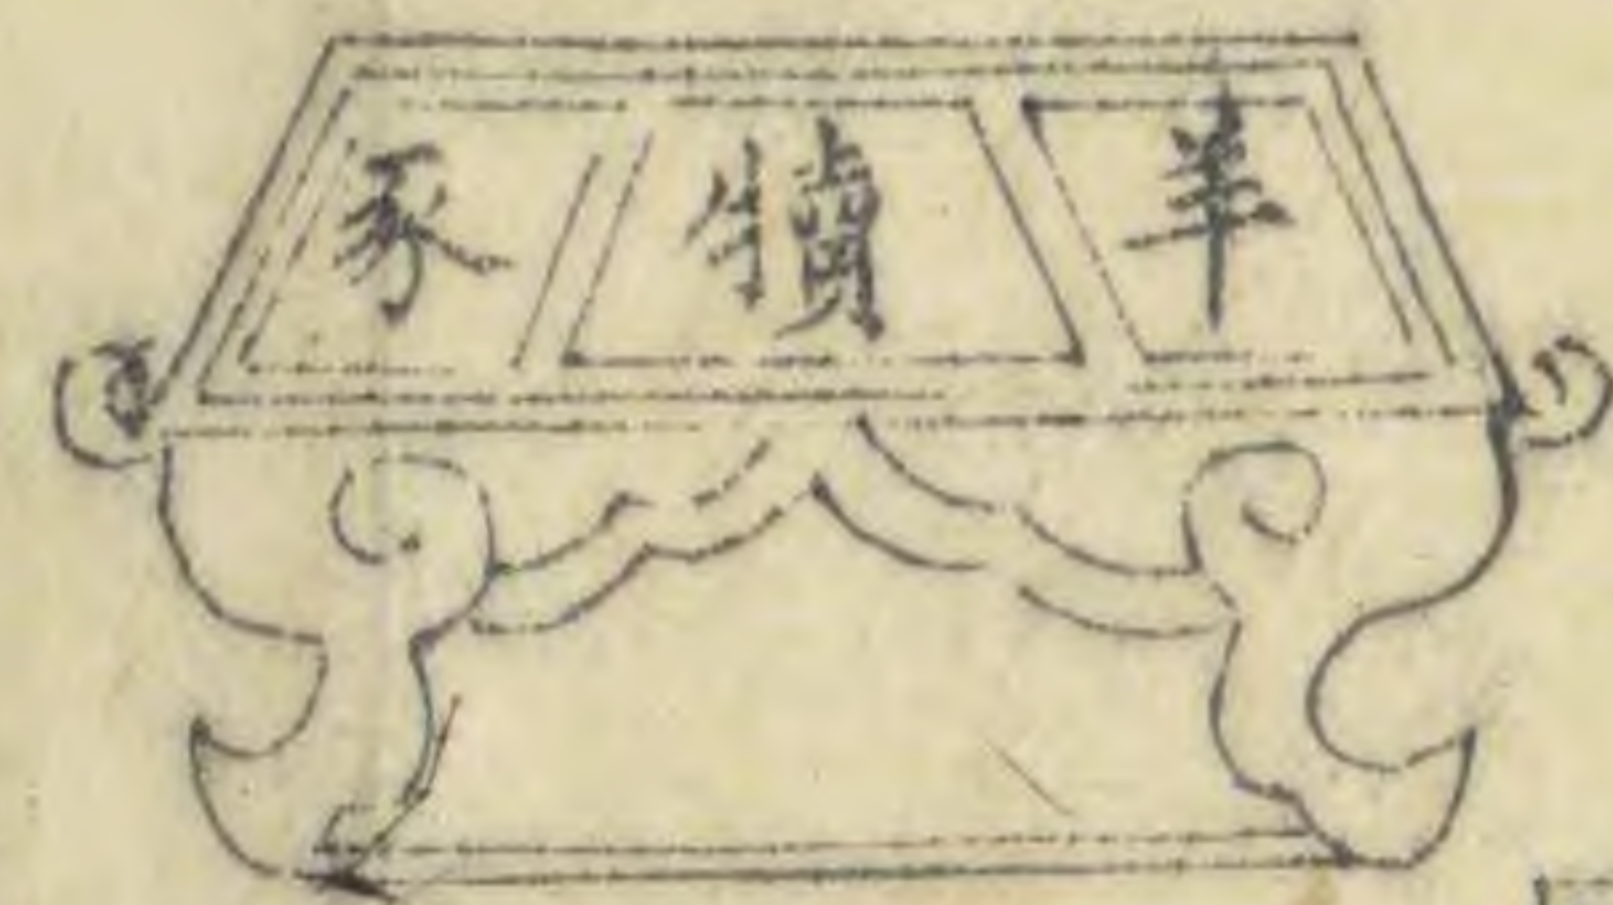 羊 犢 豕